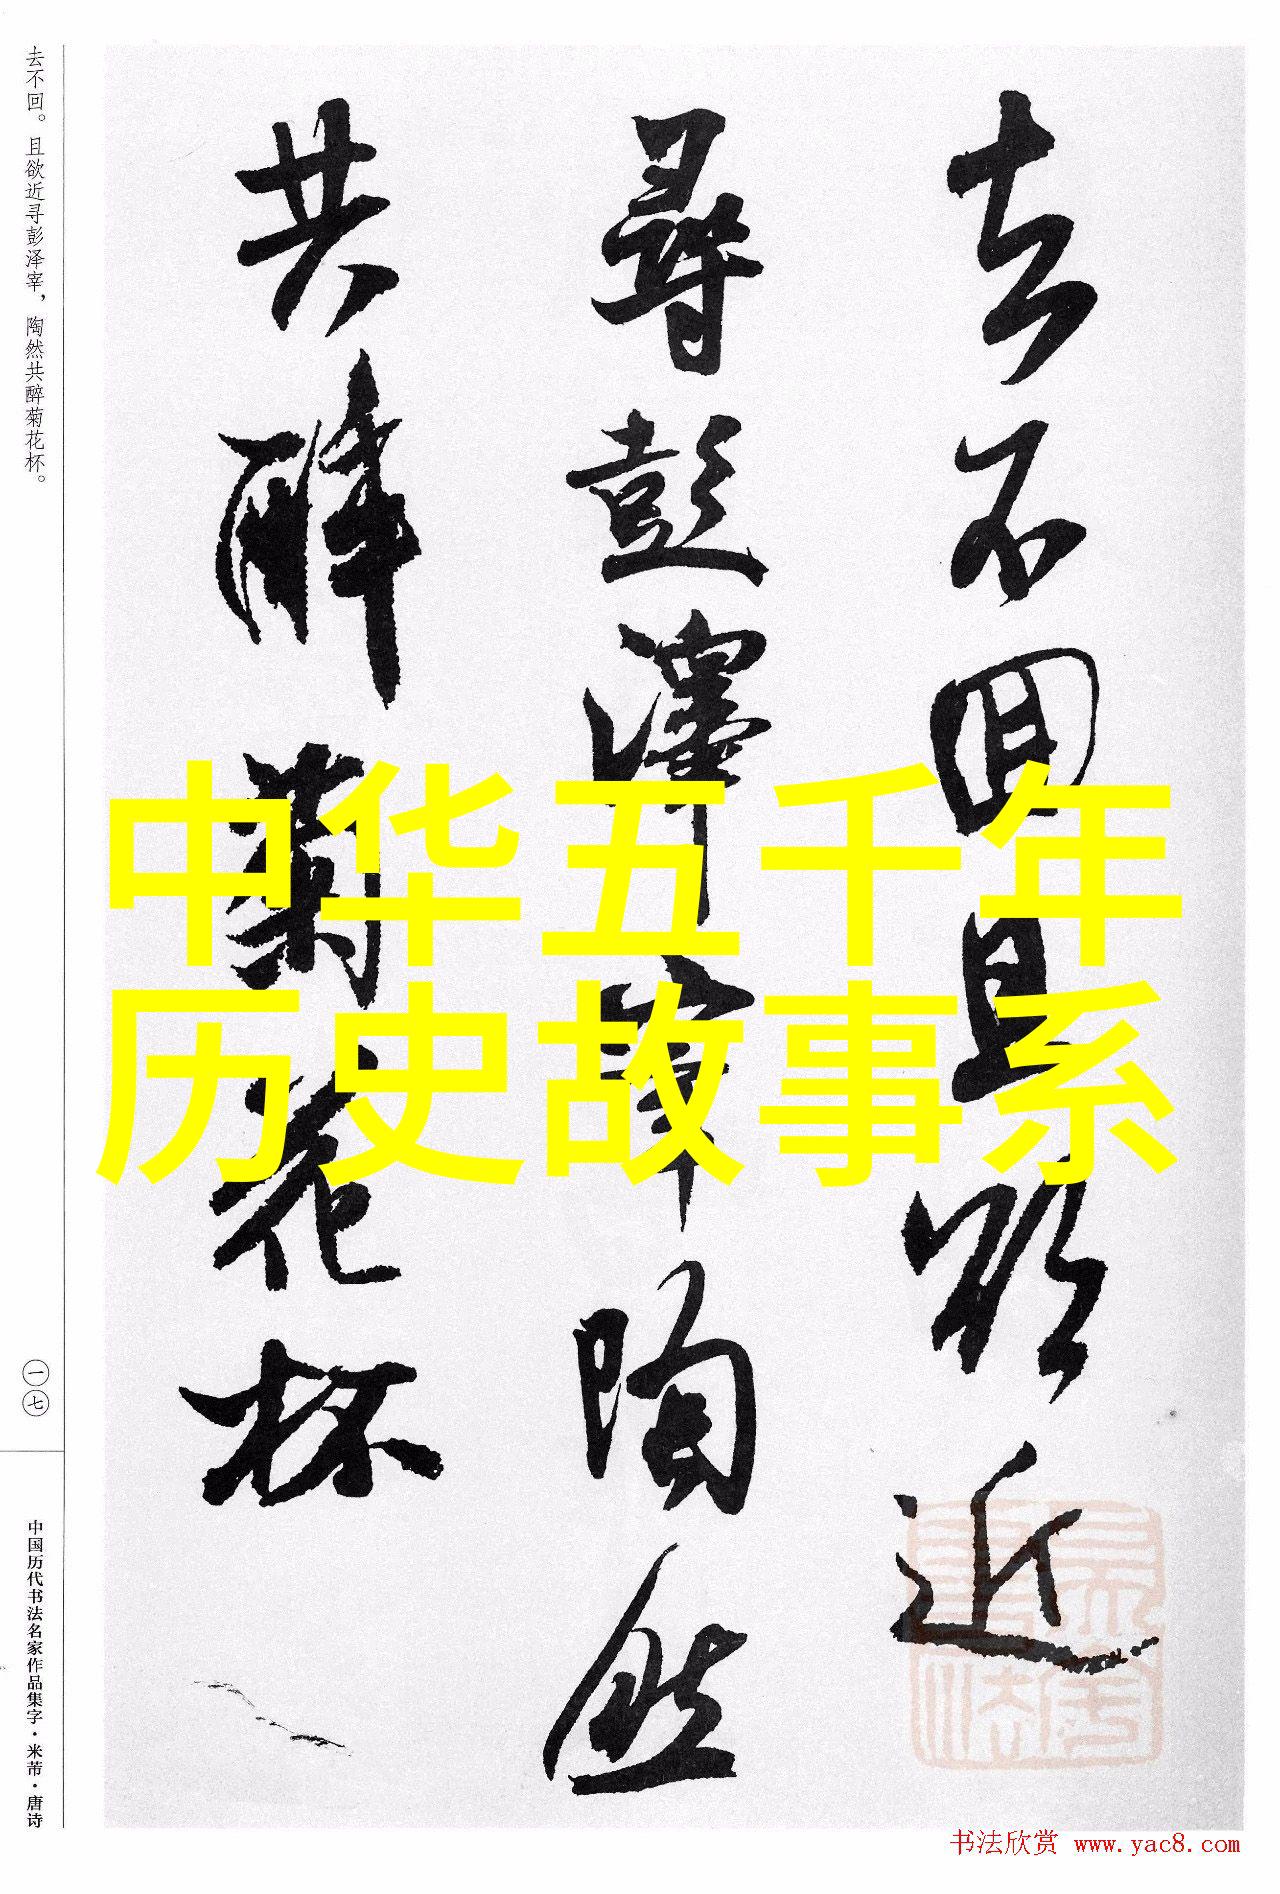 去不回且欲近
尋彭澤宰陶然
共醉菊花杯
去不回。且欲近寻彭泽宰，陶然共醉菊花杯。
一七
中国历代书法名家作品集字·米芾·唐诗
中华五千年
历史故事系
书法欣赏 www.yac8.com